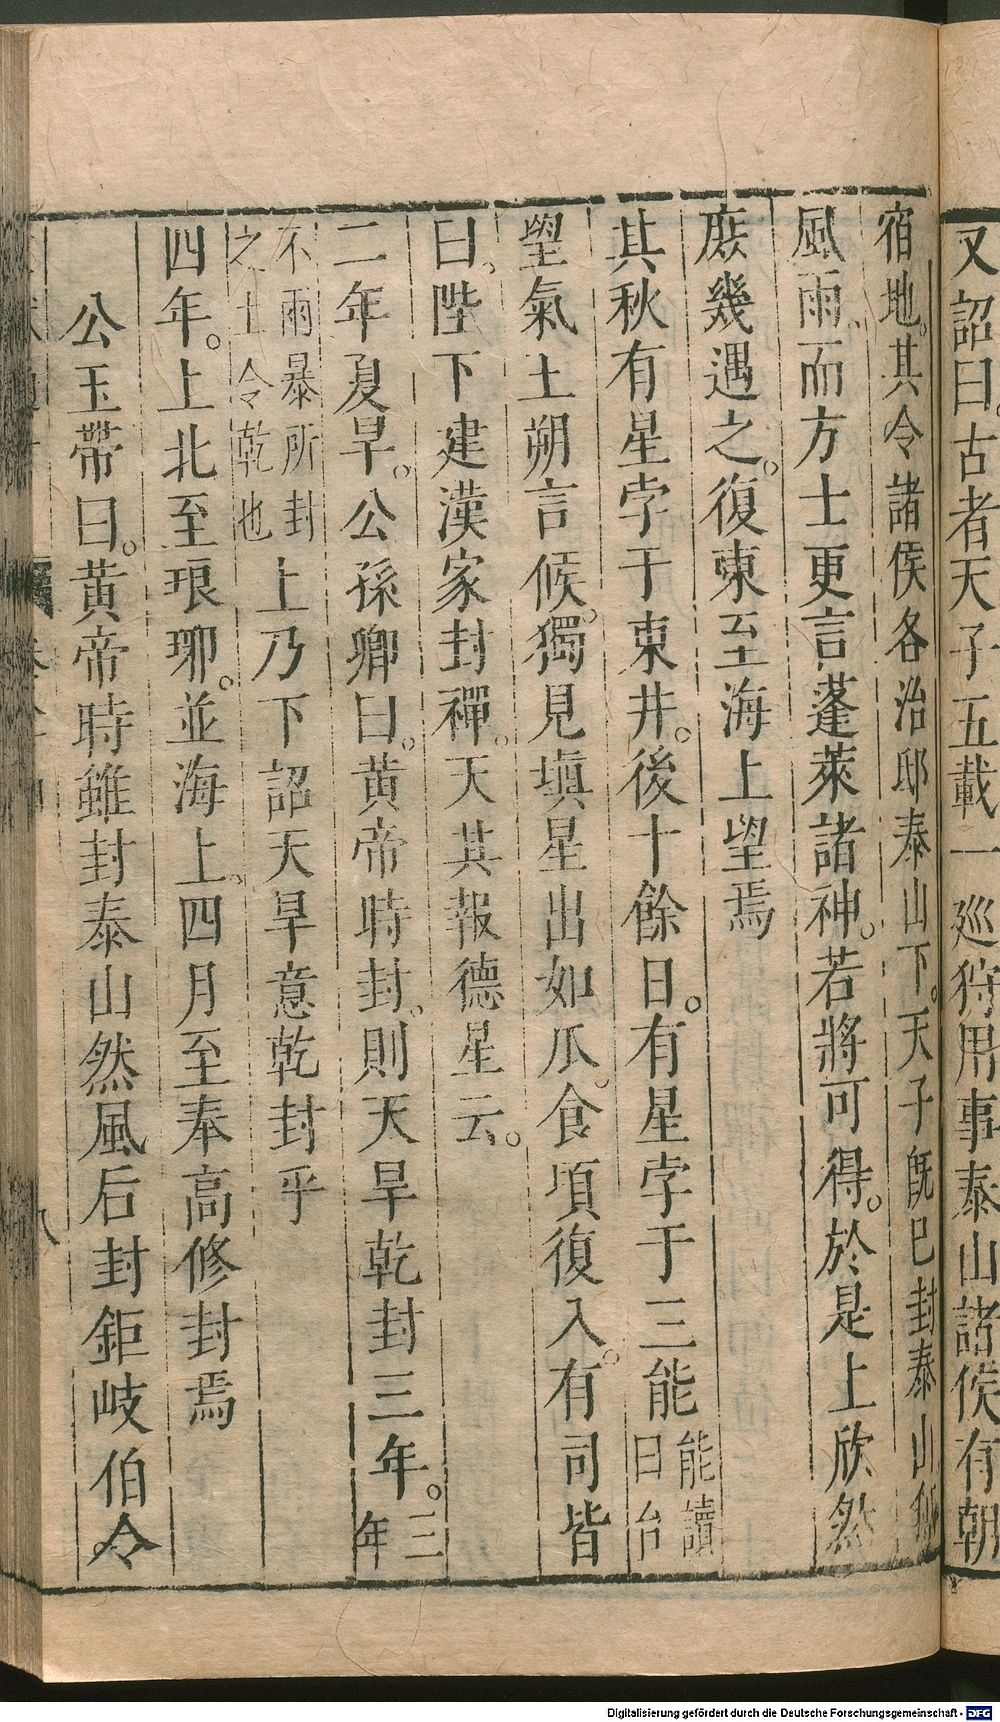 又詔曰。古者天子五載一巡狩。用事泰山。諸侯有朝
宿地。其令諸侯各治邸泰山下。天子旣巳封泰山。無
風雨。而方士更言蓬萊諸神。若將可得。於是上欣然
庶幾遇之。復東至海上望焉
其秋有星孛于東井。後十餘日。有星孛于三能能讀曰台
望氣王朔言候。獨見塡星出如瓜。食頃復入。有司皆
曰。陛下建漢家封禪。天其報德星云。
二年夏旱。公孫卿曰。黃帝時封。則天旱乾封三年。三年
不雨暴所封之土令乾也上乃下詔天旱意乾封乎
四年。上北至琅琊。並海上。四月至奉高修封焉
公玉帶曰。黃帝時雖封泰山然風后封鉅岐伯令
八
Digitalisierung gefördert durch die Deutsche Forschungsgemeinschaft - DFG